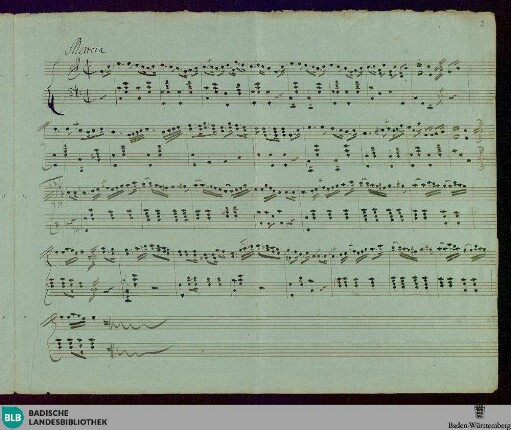 2
Marcia
BLB
BADISCHE
LANDESBIBLIOTHEK
Baden-Württemberg